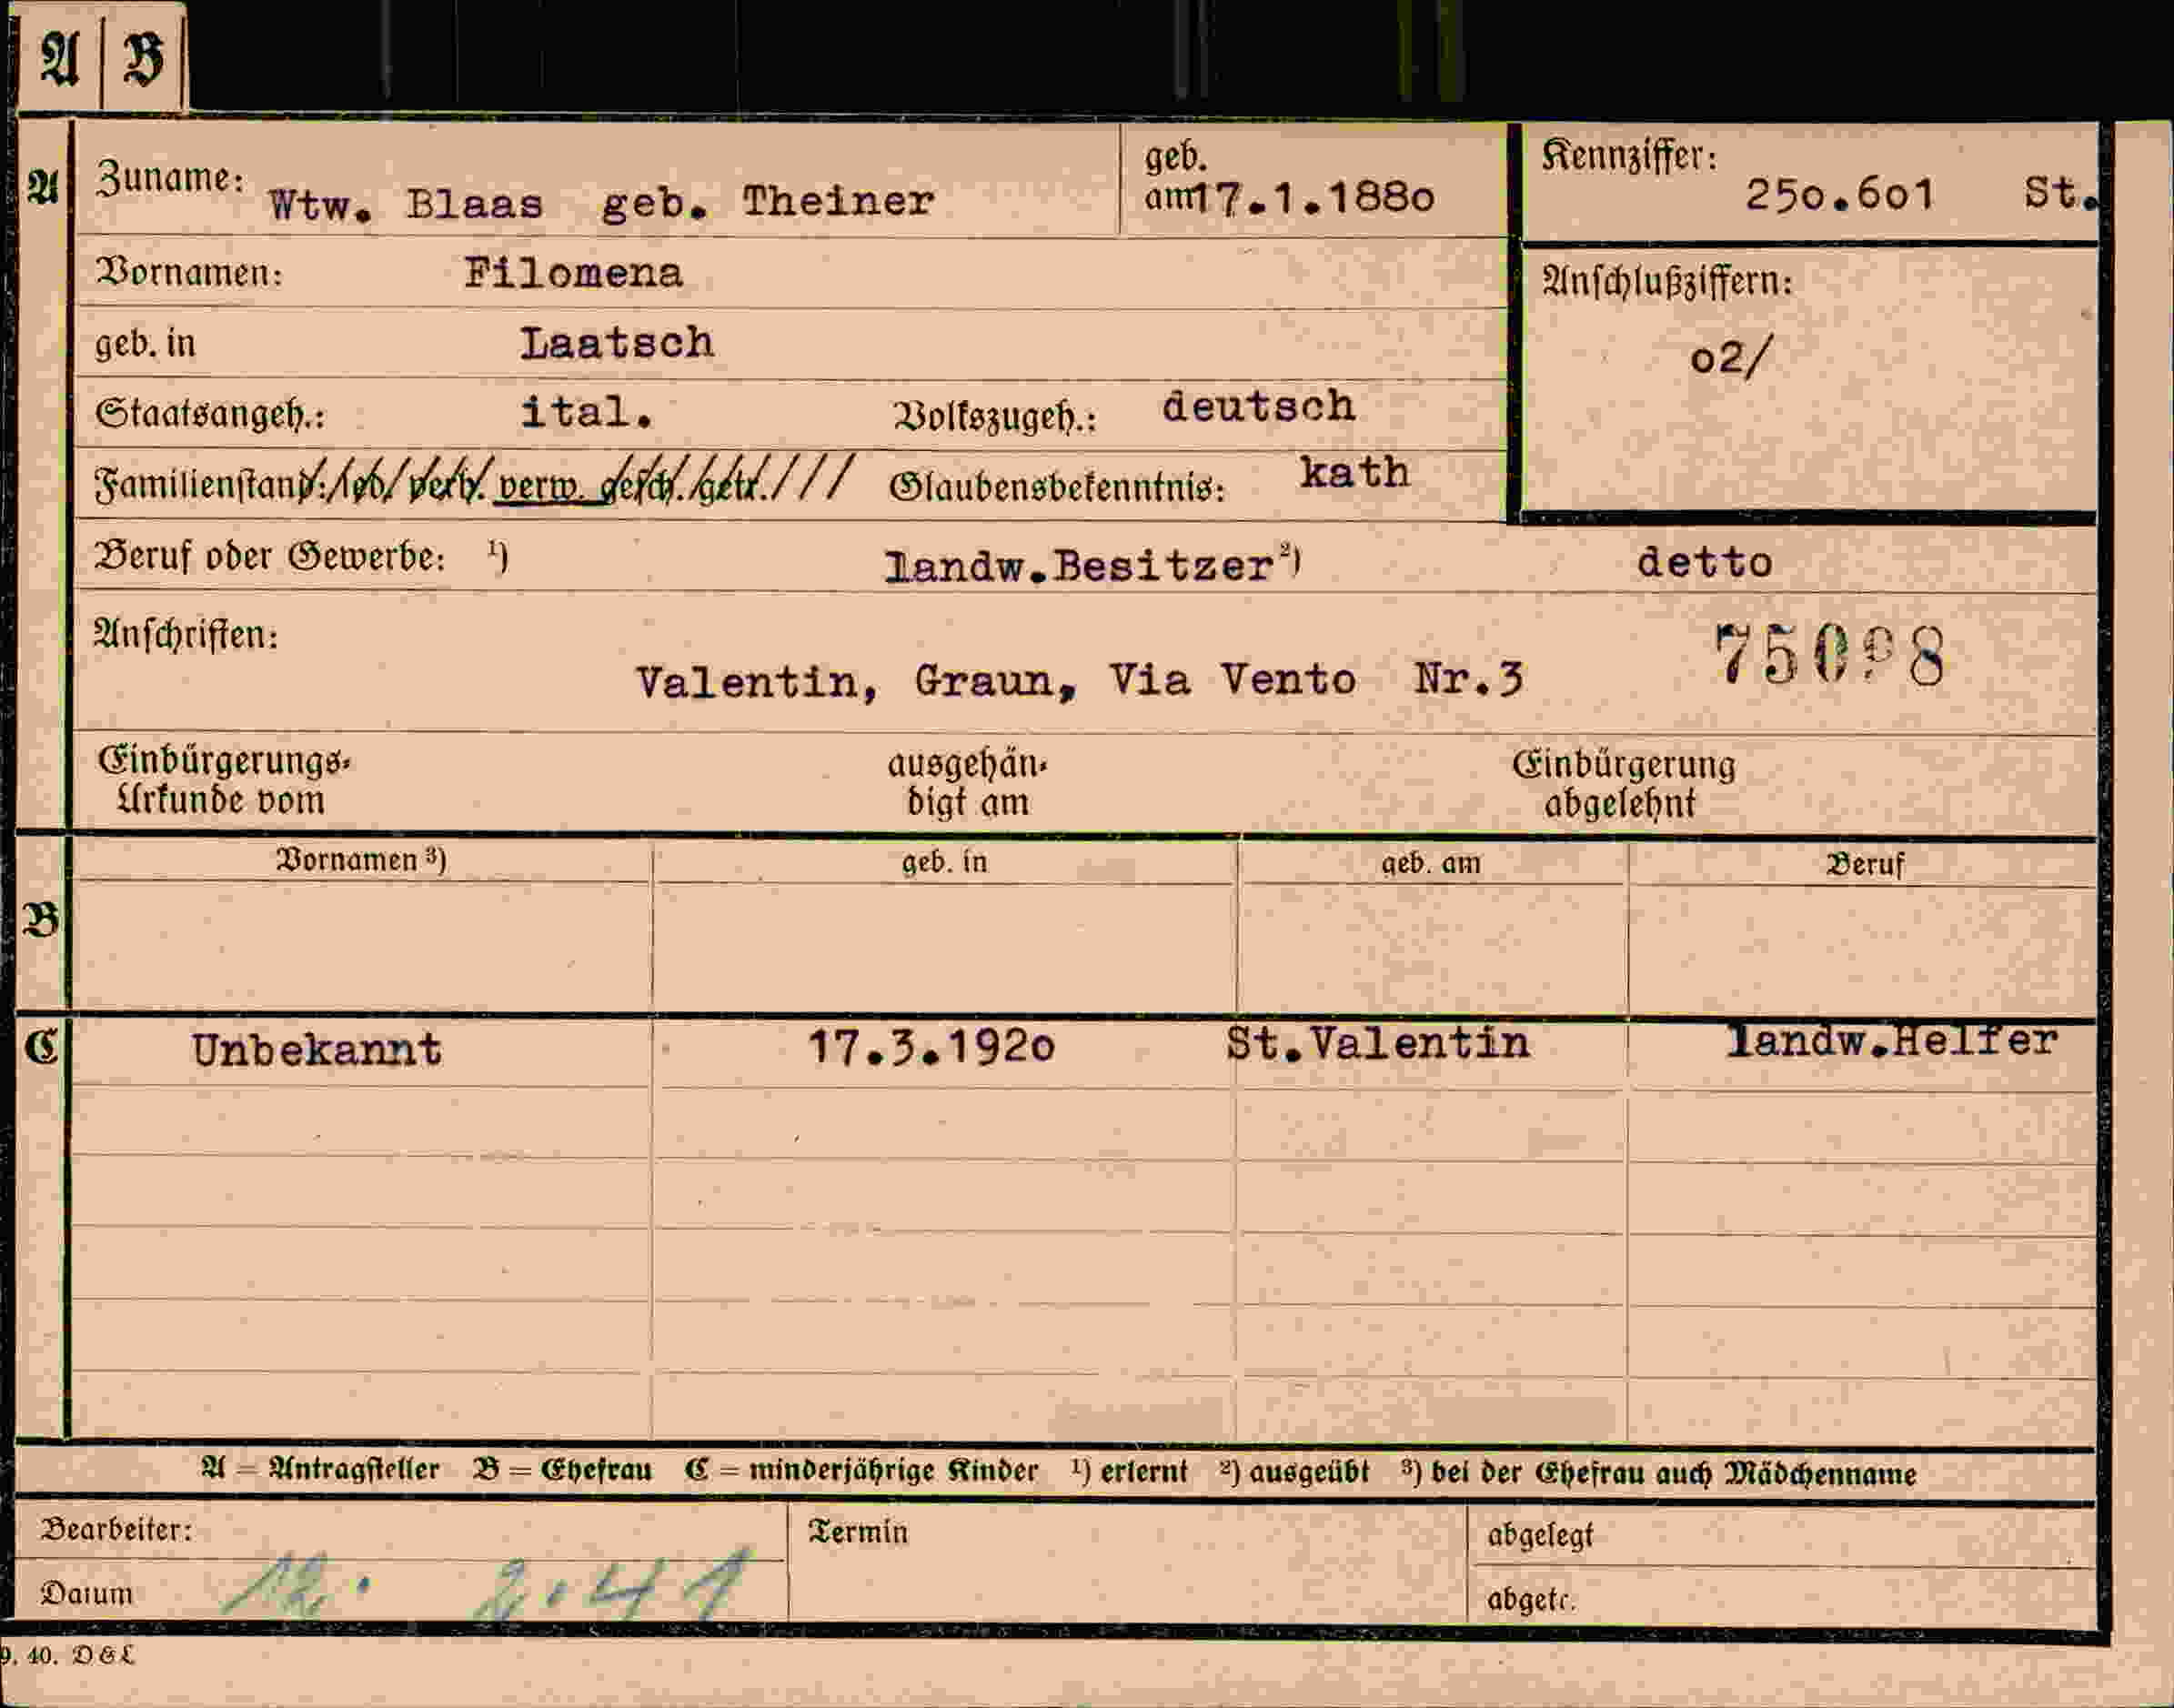 A B
A Zuname: Wtw. Blaas geb. Theiner geb. am 17.1.188o Kennziffer: 25o.6o1 St.
Vornamen: Filomena Anschlußziffern:
geb. in Laatsch o2/
Staatsangeh.: ital. Volkszugeh.: deutsch
Familienstand: led. verh. verw. gesch. getr. Glaubensbekenntnis: kath
Beruf oder Gewerbe: 1) landw.Besitzer 2) detto
Anschriften:
Valentin, Graun, Via Vento Nr.3
Einbürgerungs- ausgehän- Einbürgerung
Urkunde vom digt am abgelehnt
Vornamen 3) geb. in geb. am Beruf
B
C Unbekannt 17.3.192o St.Valentin landw.Helfer
A = Antragsteller B = Ehefrau C = minderjährige Kinder 1) erlernt 2) ausgeübt 3) bei der Ehefrau auch Mädchenname
Bearbeiter: Termin abgelegt
Datum 12. 2.41 abgetr.
9. 40. D & L